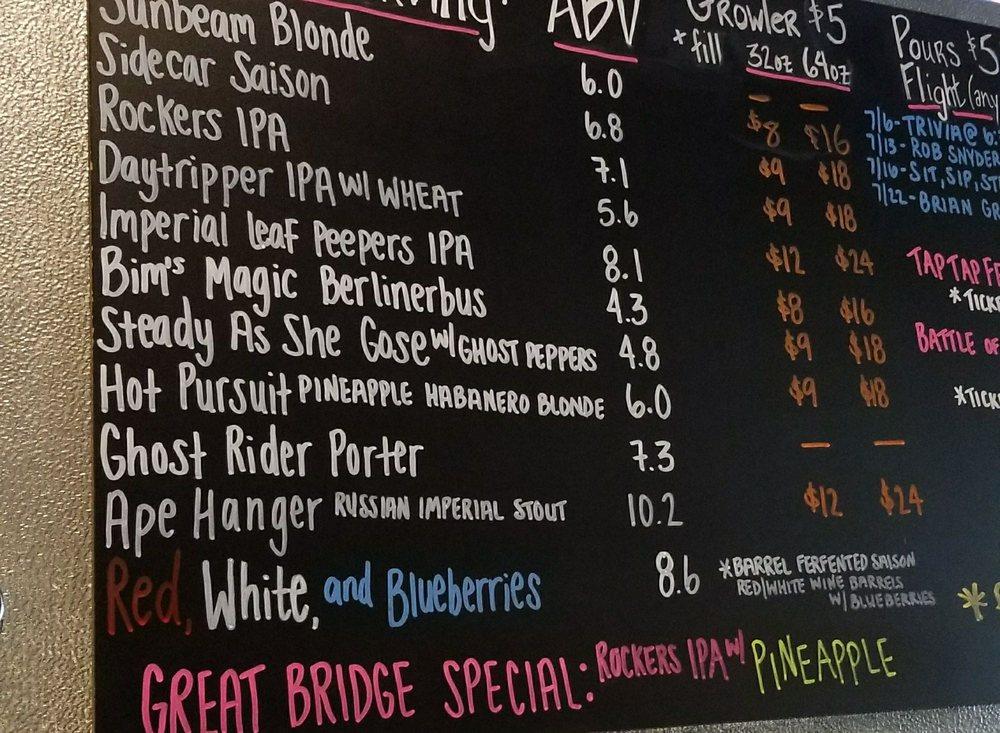 ABV
Growler $5
*fill 32oz 64oz
Sunbeam Blonde 6.0 — —
Sidecar Saison 6.8 $8 $16
Rockers IPA 7.1 $9 $18
Daytripper IPA w/ WHEAT 5.6 $9 $18
Imperial Leaf Peepers IPA 8.1 $12 $24
Bim's Magic Berlinerbus 4.3 $8 $16
Steady As She Gose w/ GHOST PEPPERS 4.8 $9 $18
Hot Pursuit PINEAPPLE HABANERO BLONDE 6.0 $9 $18
Ghost Rider Porter 7.3 — —
Ape Hanger RUSSIAN IMPERIAL STOUT 10.2 $12 $24
Red, White, and Blueberries 8.6 *BARREL FERFENTED SAISON
RED/WHITE WINE BARRELS
W/ BLUEBERRIES
GREAT BRIDGE SPECIAL: ROCKERS IPA w/ PINEAPPLE
Pours $5
Flight (any
7/6-TRIVIA@
7/13-ROB SNYDER
7/16-SIT, SIP, ST
7/22-BRIAN GR
TAP TAP
*TICK
BATTLE OF
*TICK